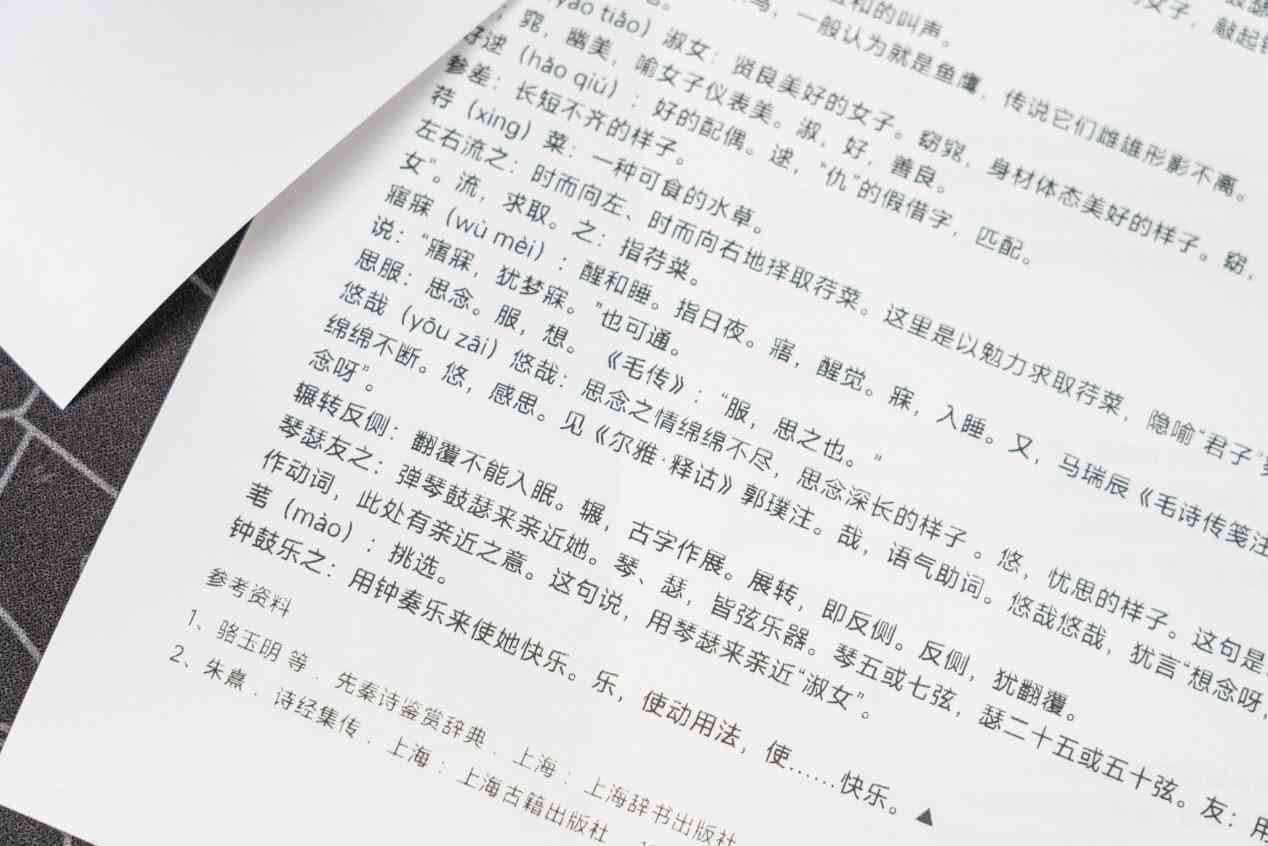 女子，敲起
和的叫声。
鸟，一般认为就是鱼鹰，传说它们雌雄形影不离。
（yǎo tiǎo）淑女：贤良美好的女子。窈窕，身材体态美好的样子。窈，
窕，幽美，喻女子仪表美。淑，好，善良。
好逑（hǎo qiú）：好的配偶。逑，“仇”的假借字，匹配。
参差：长短不齐的样子。
荇（xìng）菜：一种可食的水草。
左右流之：时而向左、时而向右地择取荇菜。这里是以勉力求取荇菜，隐喻“君子”
女”。流，求取。之：指荇菜。
寤寐（wù mèi）：醒和睡。指日夜。寤，醒觉。寐，入睡。又，马瑞辰《毛诗传笺注
说：“寤寐，犹梦寐。”也可通。
思服：思念。服，想。《毛传》：“服，思之也。”
悠哉（yōu zāi）悠哉：思念之情绵绵不尽，思念深长的样子 。悠，忧思的样子。这句是
绵绵不断。悠，感思。见《尔雅·释诂》郭璞注。哉，语气助词。悠哉悠哉，犹言“想念呀，
念呀”。
辗转反侧：翻覆不能入眠。辗，古字作展。展转，即反侧。反侧，犹翻覆。
琴瑟友之：弹琴鼓瑟来亲近她。琴、瑟，皆弦乐器。琴五或七弦，瑟二十五或五十弦。友：用
作动词，此处有亲近之意。这句说，用琴瑟来亲近“淑女”。
芼（mào）：挑选。
钟鼓乐之：用钟奏乐来使她快乐。乐，使动用法，使……快乐。▲
参考资料
1、骆玉明 等．先秦诗鉴赏辞典．上海：上海辞书出版社
2、朱熹．诗经集传．上海：上海古籍出版社